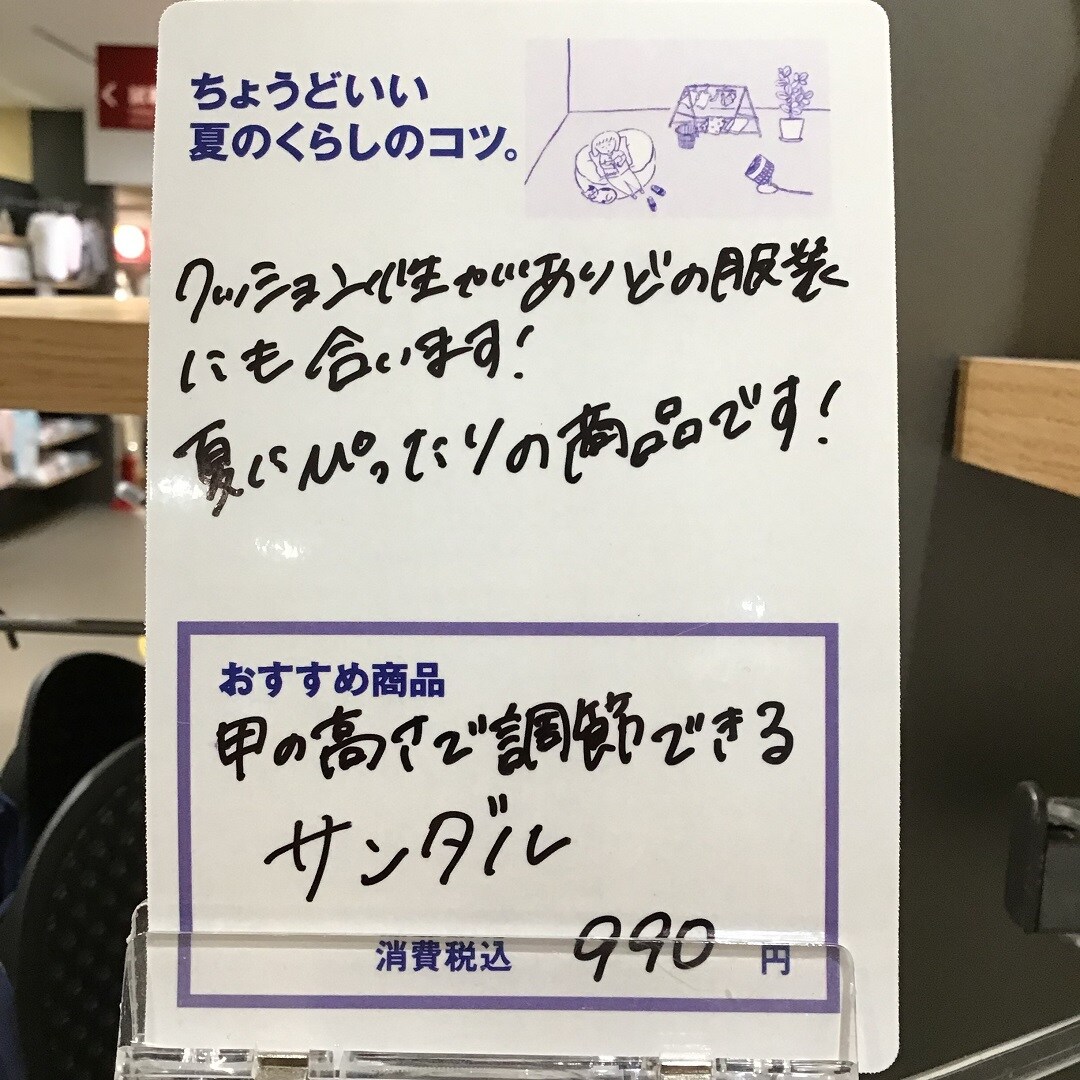 ちょうどいい
夏のくらしのコツ。
クッション性がありどの服装
にも合います!
夏にぴったりの商品です!
おすすめ商品
甲の高さで調節できる
サンダル
消費税込 990 円